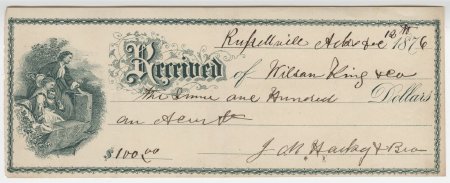 Russellville Ark Dec 12th 1876
Received of Wilson King & Co
the sum one Hundred Dollars
on
$100.00 J M Harkey & Bro